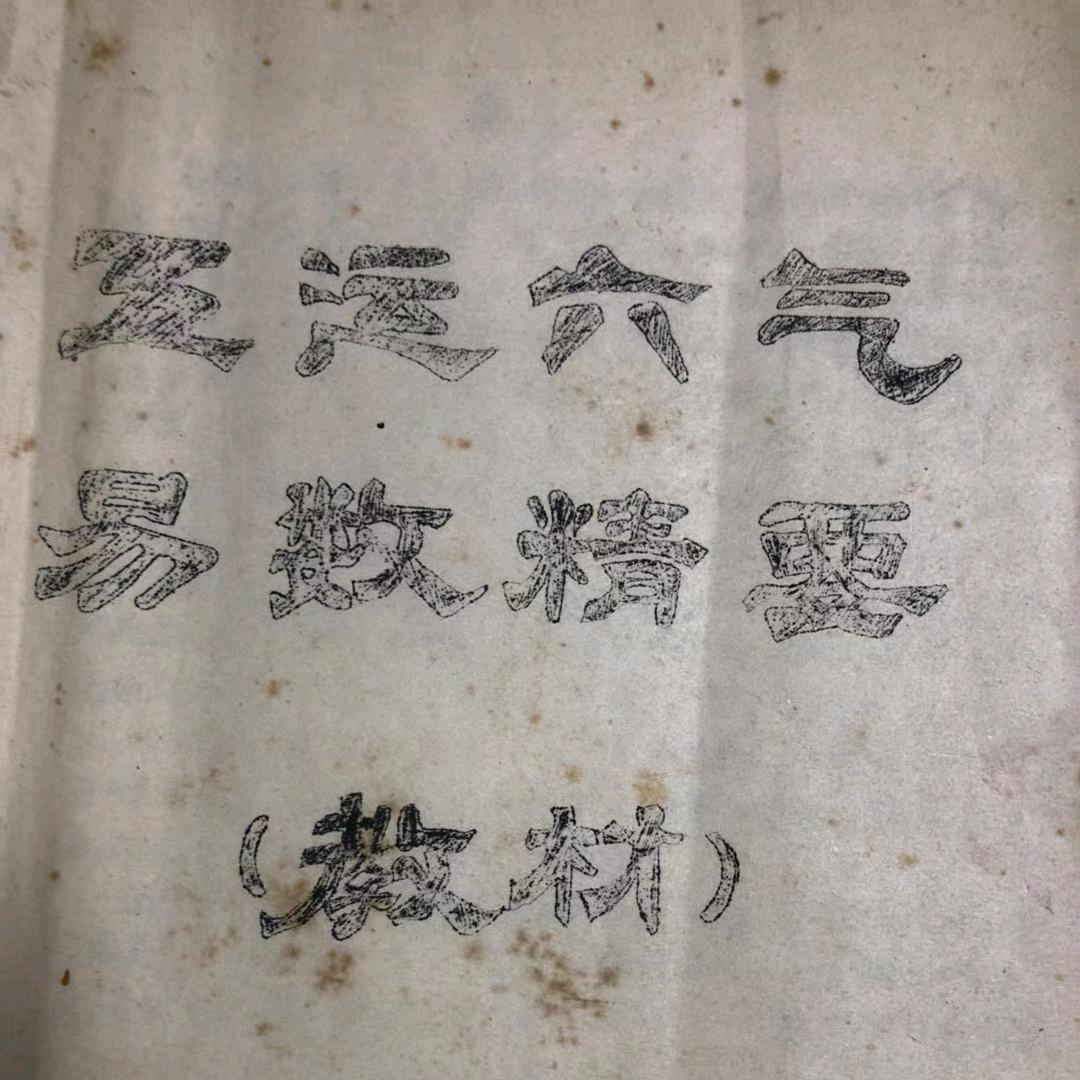 五运六气
易数精要
（教材）